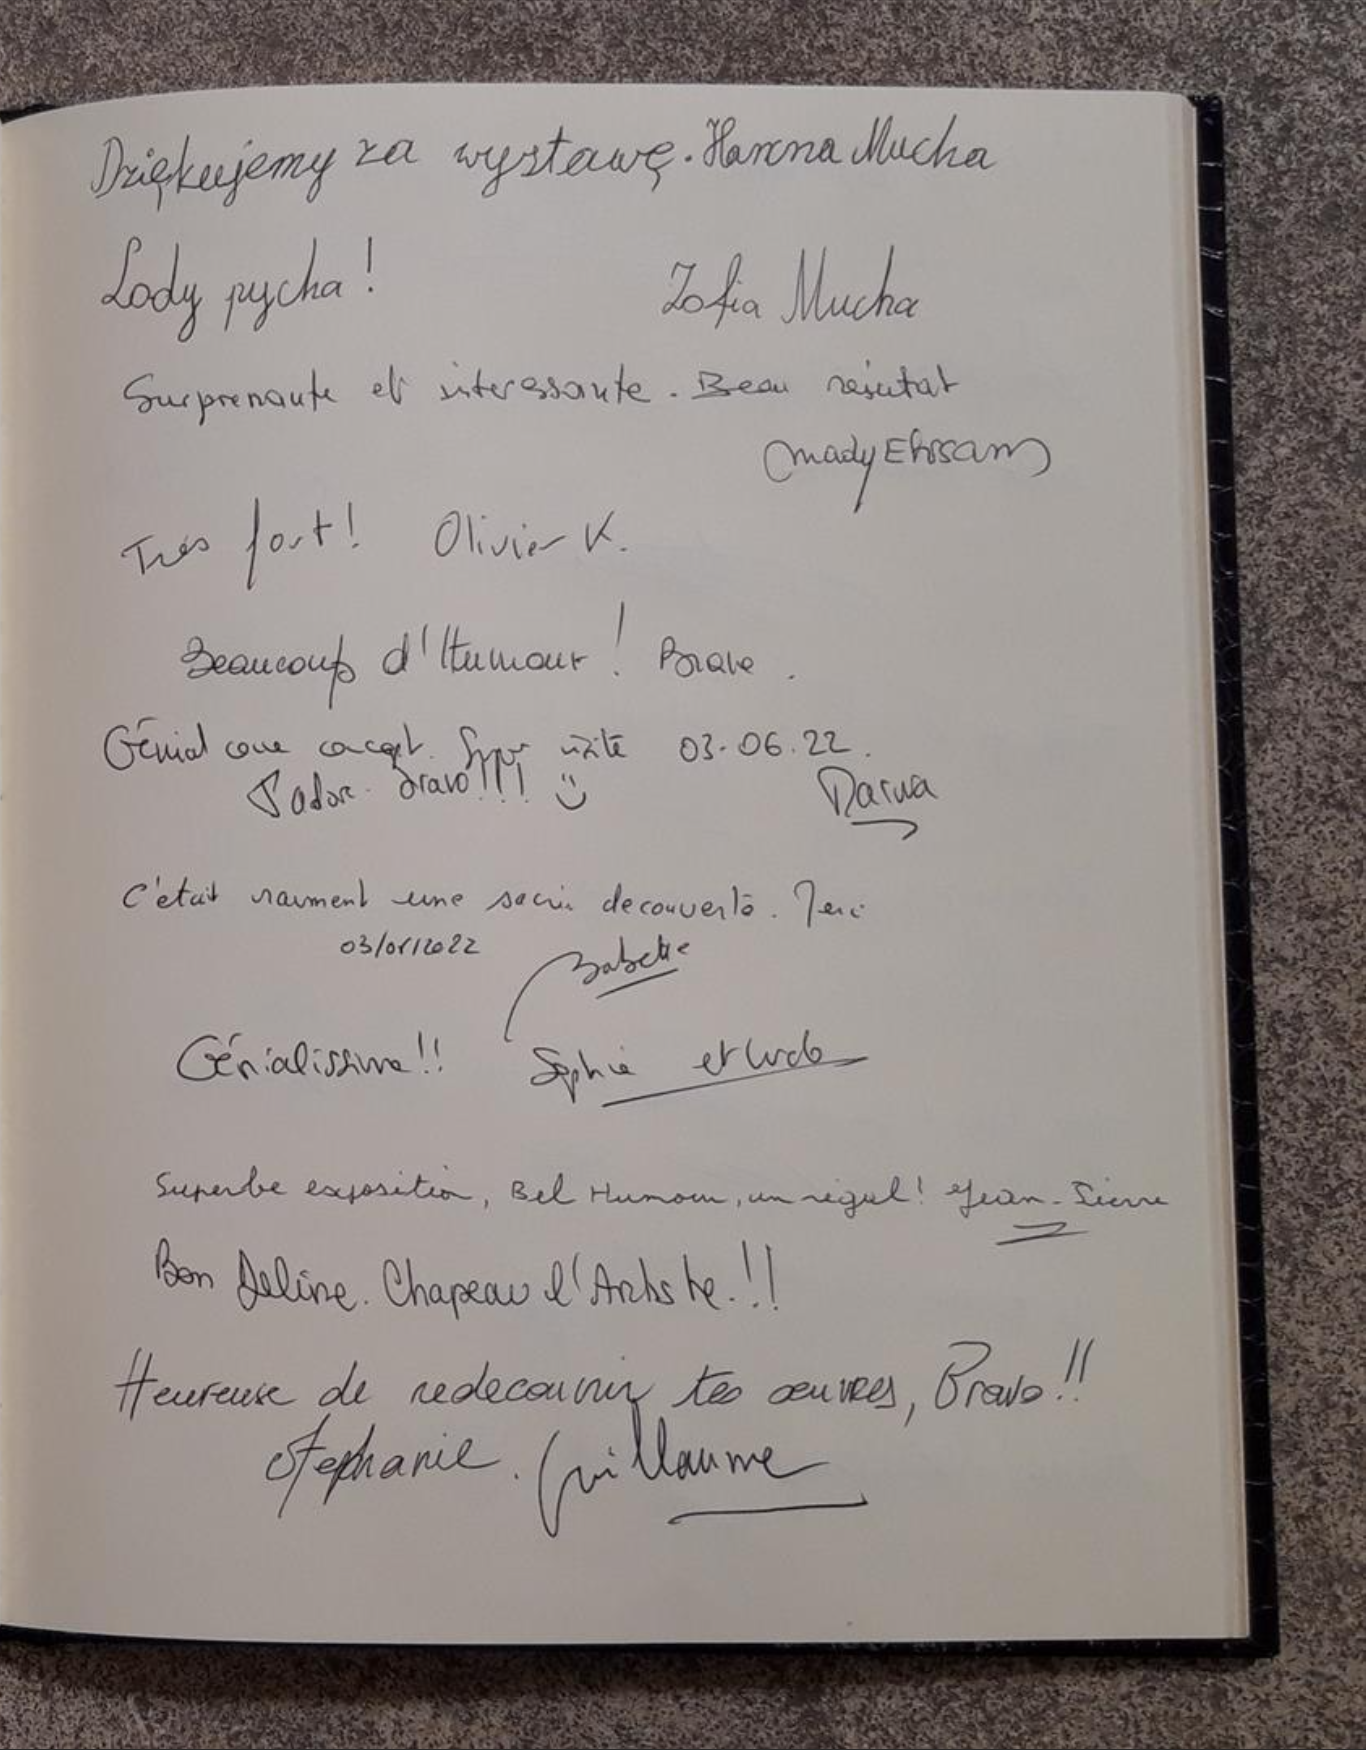 Dziękujemy za wystawę. Hanna Mucha
Lody pycha! Zofia Mucha
Surprenante et interessante. Beau résultat
Mady Ehrsam
Très fort! Olivier K.
Beaucoup d'Humour! Bravo.
Génial comme concept. Super visite 03.06.22.
J'adore. Bravo!!! :)
C'était vraiment une découverte. Merci
Babette
Génialissime!! Sophie et Ludo
Superbe exposition, Bel Humour, un régal! Jean-Pierre
Bon Délire. Chapeau l'Artiste.!!
Heureuse de redecouvrir tes œuvres, Bravo!!
Stephanie. Guillaume